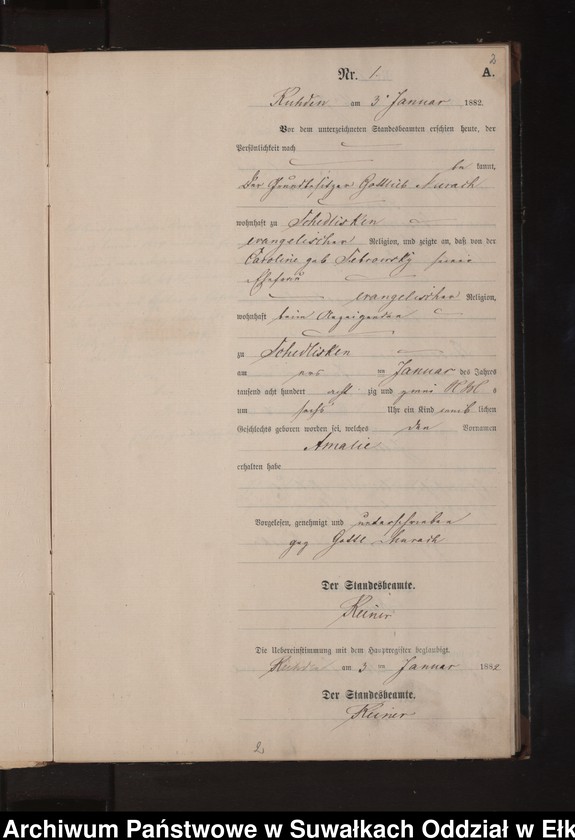 2
Nr. 1. A.
Kuhden am 3t Januar 1882.
Vor dem unterzeichneten Standesbeamten erschien heute, der
Persönlichkeit nach
be kannt,
Der Grundbesitzer Gottlieb Murach
wohnhaft zu Schedlisken
evangelischer Religion, und zeigte an, daß von der
Caroline geb seine
Ehefrau
evangelischer Religion,
wohnhaft beim Anzeigenden
zu Schedlisken
am ten Januar des Jahres
tausend acht hundert acht zig und zwei
um sechs Uhr ein Kind weib lichen
Geschlechts geboren worden sei, welches den Vornamen
Amalie
erhalten habe
Vorgelesen, genehmigt und unterschrieben
gez Gottl Murach
Der Standesbeamte.
Keiner
Die Uebereinstimmung mit dem Hauptregister beglaubigt.
am 3 ten Januar 1882
Der Standesbeamte.
Keiner
2
Archiwum Państwowe w Suwałkach Oddział w Ełk